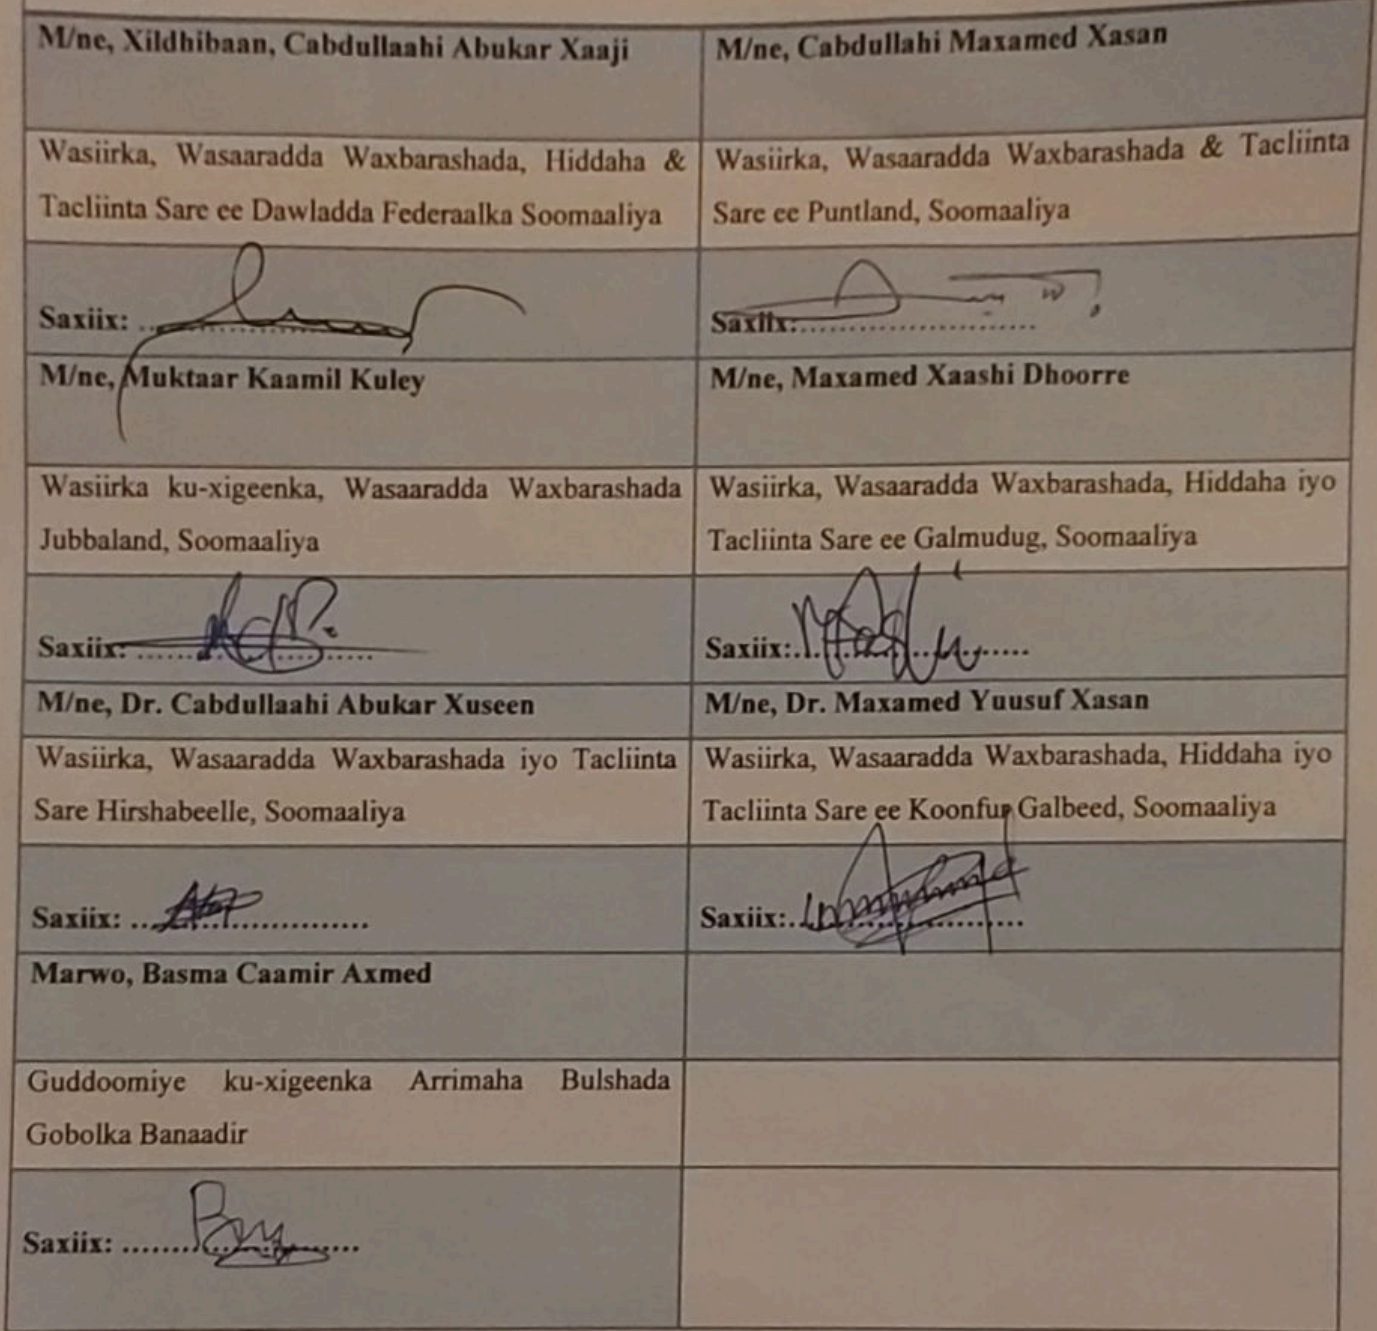 M/ne, Xildhibaan, Cabdullaahi Abukar Xaaji
M/ne, Cabdullahi Maxamed Xasan
Wasiirka, Wasaaradda Waxbarashada, Hiddaha &
Tacliinta Sare ee Dawladda Federaalka Soomaaliya
Wasiirka, Wasaaradda Waxbarashada & Tacliinta
Sare ee Puntland, Soomaaliya
Saxiix: ..............................
Saxiix:..............................
M/ne, Muktaar Kaamil Kuley
M/ne, Maxamed Xaashi Dhoorre
Wasiirka ku-xigeenka, Wasaaradda Waxbarashada
Jubbaland, Soomaaliya
Wasiirka, Wasaaradda Waxbarashada, Hiddaha iyo
Tacliinta Sare ee Galmudug, Soomaaliya
Saxiix: ..............................
Saxiix:..............................
M/ne, Dr. Cabdullaahi Abukar Xuseen
M/ne, Dr. Maxamed Yuusuf Xasan
Wasiirka, Wasaaradda Waxbarashada iyo Tacliinta
Sare Hirshabeelle, Soomaaliya
Wasiirka, Wasaaradda Waxbarashada, Hiddaha iyo
Tacliinta Sare ee Koonfur Galbeed, Soomaaliya
Saxiix: ..............................
Saxiix:..............................
Marwo, Basma Caamir Axmed
Guddoomiye ku-xigeenka Arrimaha Bulshada
Gobolka Banaadir
Saxiix: ..............................